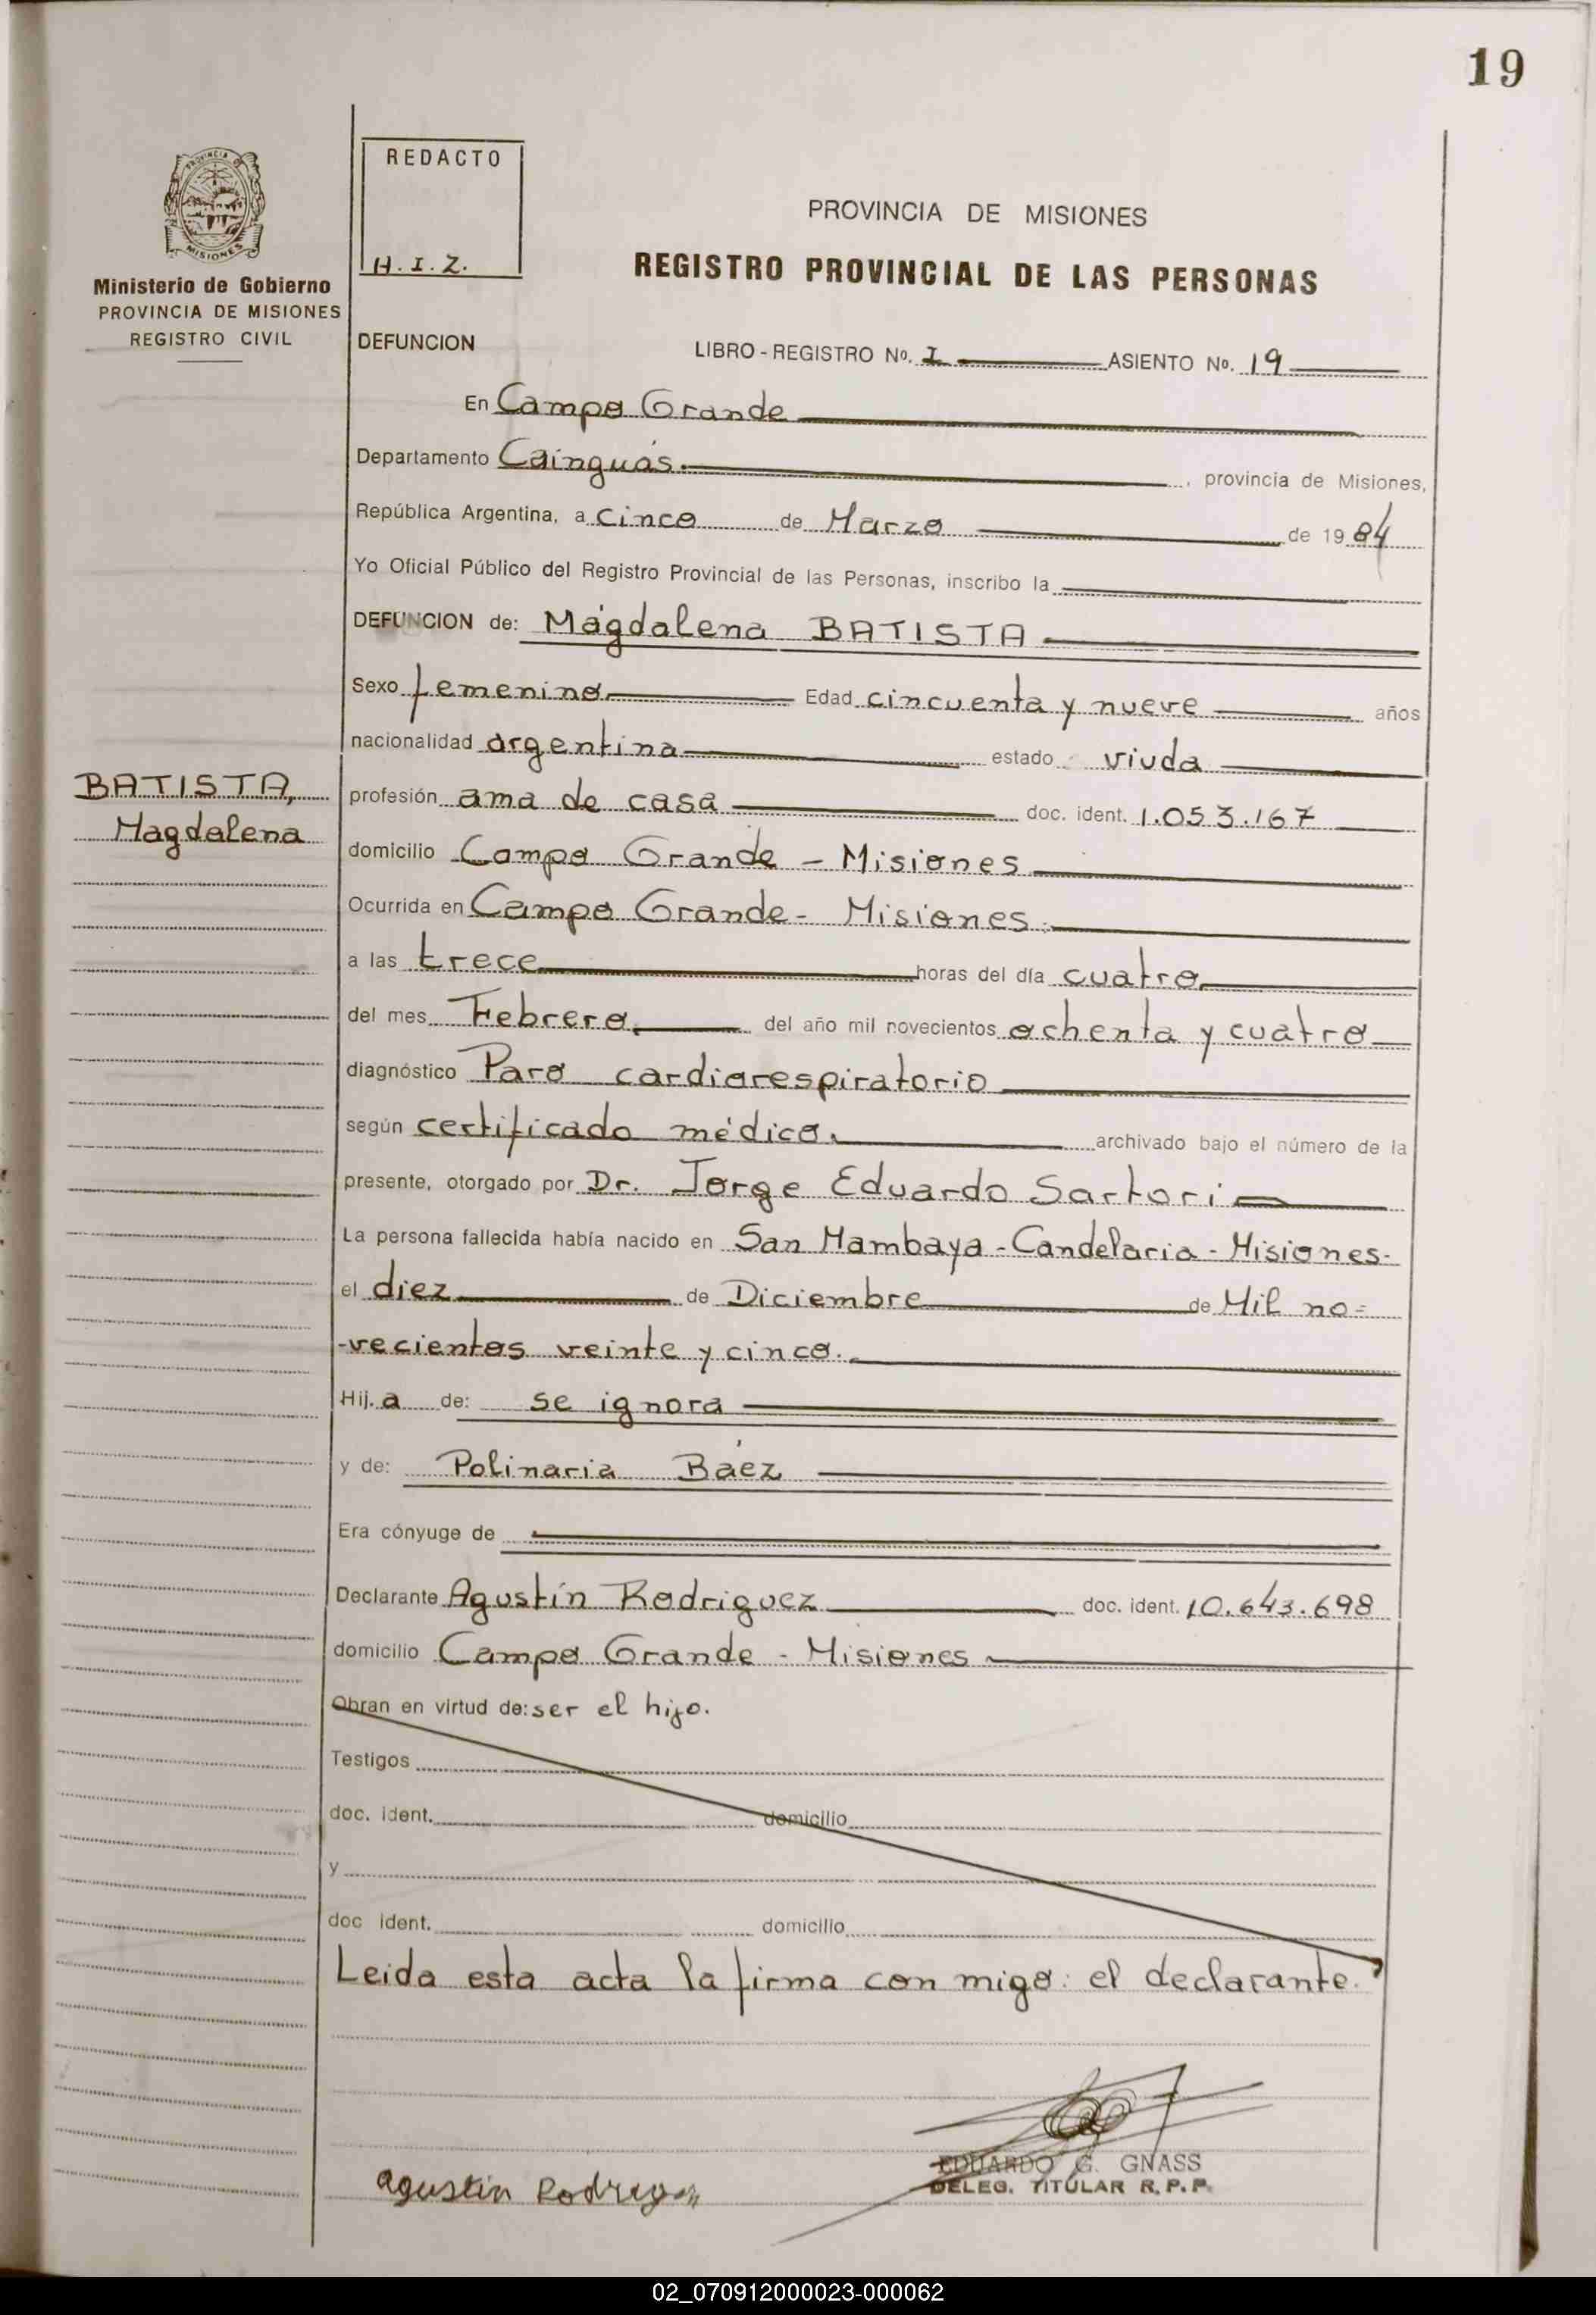 19
PROVINCIA DE
MISIONES
Ministerio de Gobierno
PROVINCIA DE MISIONES
REGISTRO CIVIL
REDACTO
H.I.Z.
PROVINCIA DE MISIONES
REGISTRO PROVINCIAL DE LAS PERSONAS
DEFUNCION LIBRO - REGISTRO No. I ASIENTO No. 19
En Campo Grande
Departamento Cainguás. , provincia de Misiones,
República Argentina, a cinco de Marzo de 1984
Yo Oficial Público del Registro Provincial de las Personas, inscribo la
DEFUNCION de: Magdalena BATISTA
Sexo femenino Edad cincuenta y nueve años
nacionalidad argentina estado viuda
BATISTA,
Magdalena
profesión ama de casa doc. ident. 1.053.167
domicilio Campo Grande - Misiones
Ocurrida en Campo Grande - Misiones.
a las trece horas del día cuatro
del mes Febrero. del año mil novecientos ochenta y cuatro
diagnóstico Paro cardiorespiratorio
según certificado médico. archivado bajo el número de la
presente, otorgado por Dr. Jorge Eduardo Sartori
La persona fallecida había nacido en San Mambaya - Candelaria - Misiones-
el diez de Diciembre de Mil no=
-vecientos veinte y cinco.
Hij.a de: se ignora
y de: Polinaria Báez
Era cónyuge de
Declarante Agustín Rodriguez doc. ident. 10.643.698
domicilio Campo Grande - Misiones
Obran en virtud de: ser el hijo.
Testigos
doc. ident. domicilio
y
doc ident. domicilio
Leida esta acta la firma con migo: el declarante.
EDUARDO G. GNASS
DELEG. TITULAR R.P.P.
agustin Rodriguez
02_070912000023-000062